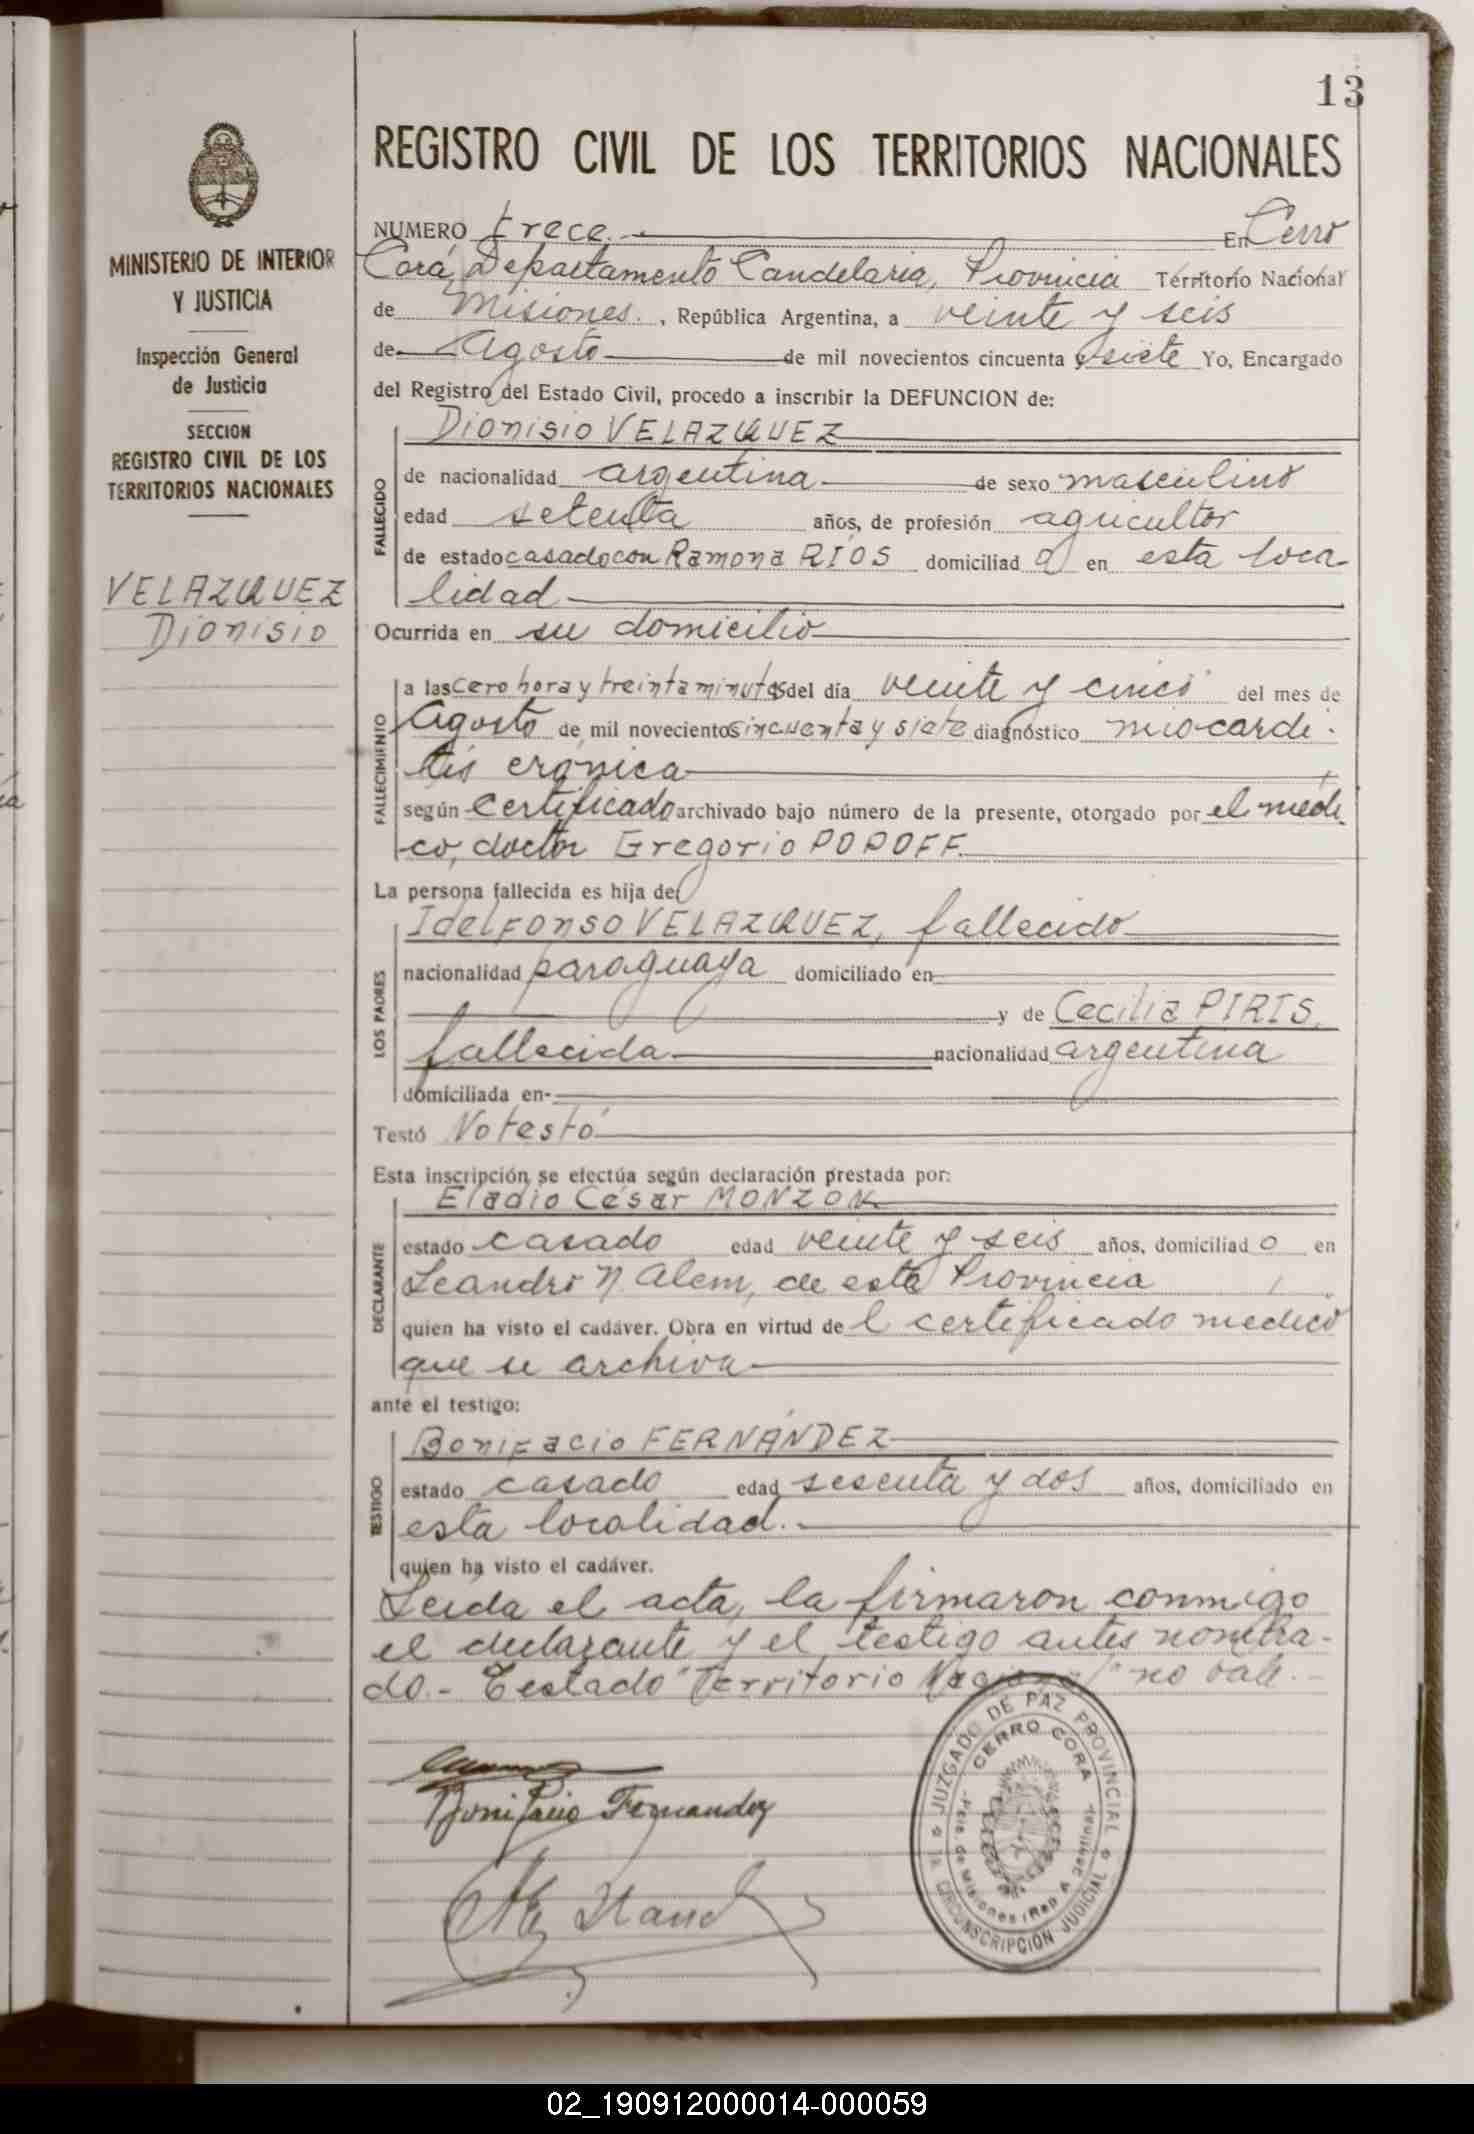 13
REGISTRO CIVIL DE LOS TERRITORIOS NACIONALES
MINISTERIO DE INTERIOR
Y JUSTICIA
Inspección General
de Justicia
SECCION
REGISTRO CIVIL DE LOS
TERRITORIOS NACIONALES
VELAZQUEZ
Dionisio
NUMERO trece. En Cerro
Corá, Departamento Candelaria, Provincia Territorio Nacional
de Misiones. , República Argentina, a veinte y seis
de Agosto de mil novecientos cincuenta y siete Yo, Encargado
del Registro del Estado Civil, procedo a inscribir la DEFUNCION de:
FALLECIDO
Dionisio VELAZQUEZ
de nacionalidad argentina de sexo masculino
edad setenta años, de profesión agricultor
de estado casado con Ramona RÍOS domiciliad o en esta loca-
lidad
Ocurrida en su domicilio
FALLECIMIENTO
a las cero hora y treinta minutos del día veinte y cinco del mes de
Agosto de mil novecientos cincuenta y siete diagnóstico miocardi-
tis crónica
según Certificado archivado bajo número de la presente, otorgado por el médi
co, doctor Gregorio POPOFF.
La persona fallecida es hija de
LOS PADRES
Idelfonso VELAZQUEZ, fallecido
nacionalidad paraguaya domiciliado en
y de Cecilia PIRIS,
fallecida nacionalidad argentina
domiciliada en
Testó No testó
Esta inscripción se efectúa según declaración prestada por:
DECLARANTE
Eladio César MONZON
estado casado edad veinte y seis años, domiciliad o en
Leandro N. Alem, de esta Provincia
quien ha visto el cadáver. Obra en virtud de l certificado médico
que se archiva
ante el testigo:
TESTIGO
Bonifacio FERNÁNDEZ
estado casado edad sesenta y dos años, domiciliado en
esta localidad.
quien ha visto el cadáver.
Leida el acta, la firmaron conmigo
el declarante y el testigo antes nombra-
do.- Testado "Territorio Nacional" no vale.-
Bonifacio Fernandez
JUZGADO DE PAZ PROVINCIAL
CERRO CORA
Pcia. de Misiones (Rep. Argentina)
1a. CIRCUNSCRIPCIÓN JUDICIAL
02_190912000014-000059